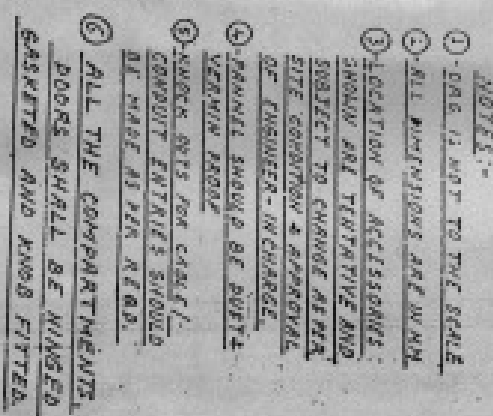 NOTES:-
① - DRG. IS NOT TO THE SCALE
② - ALL DIMENSIONS ARE IN MM.
③ - LOCATION OF ACCESSORIES:
SHOWN ARE TENTATIVE AND
SUBJECT TO CHANGE AS PER
SITE CONDITION & APPROVAL
OF ENGINEER-IN CHARGE
④ - PANNEL SHOULD BE DUST &
VERMIN PROOF
⑤ - KNOCK OUTS FOR CABLE/-
CONDUIT ENTRIES SHOULD
BE MADE AS PER REQD.
⑥ ALL THE COMPARTMENTS
DOORS SHALL BE HINGED
GASKETED AND KNOB FITTED.